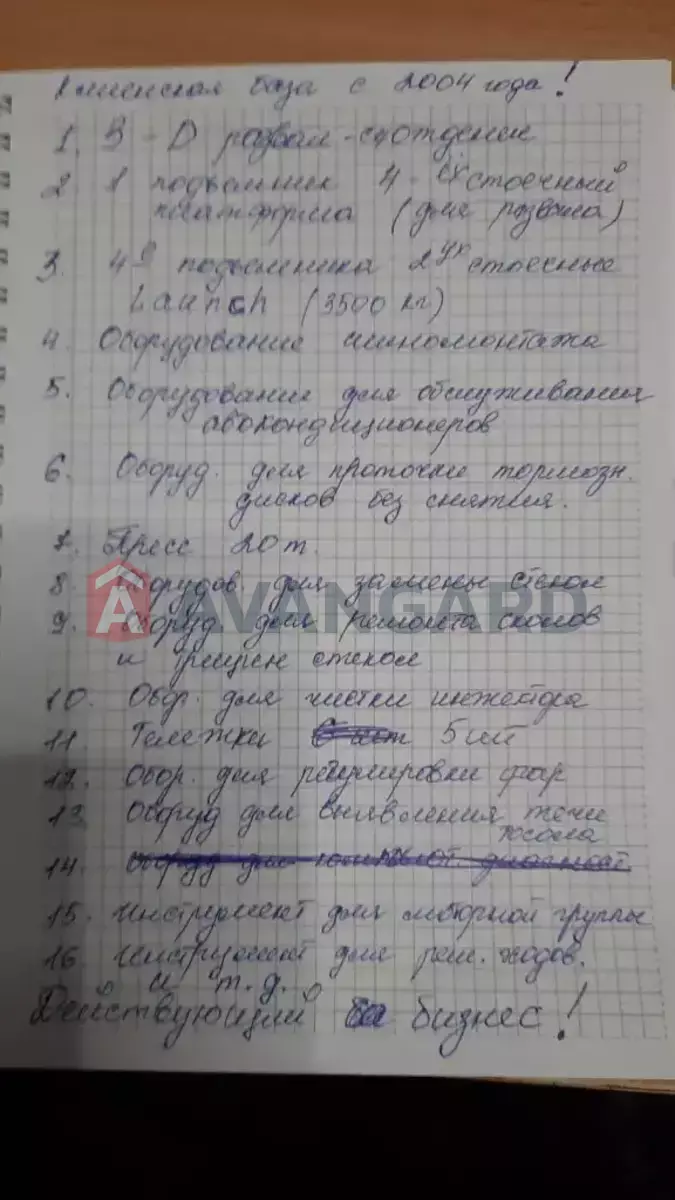 Клиенская база с 2004 года!
1. 3-D развал-схождение
2 1 подъемник 4-ех стоечный
платформа (для развала)
3. 4е подъемника 2ух стоечные
Launch (3500 кг)
4. Оборудование шиномонтажа
5. Оборудование для обслуживания
авокондиционеров
6. Оборуд. для проточки тормозн.
дисков без снятия.
7. Пресс 20 т.
8. Оборудов. для замены стекол
AVANGARD
9. Оборуд. для ремонта сколов
и трещен стекол
10. Обор. для чистки инжектора
11. Тележки 5 шт
12. Обор. для регулировки фар
13. Оборуд для выявления течи
14.
15. Инструмент для моторной группы
16. Инструмент для рем. ходов.
и т.д.
Действующий бизнес!